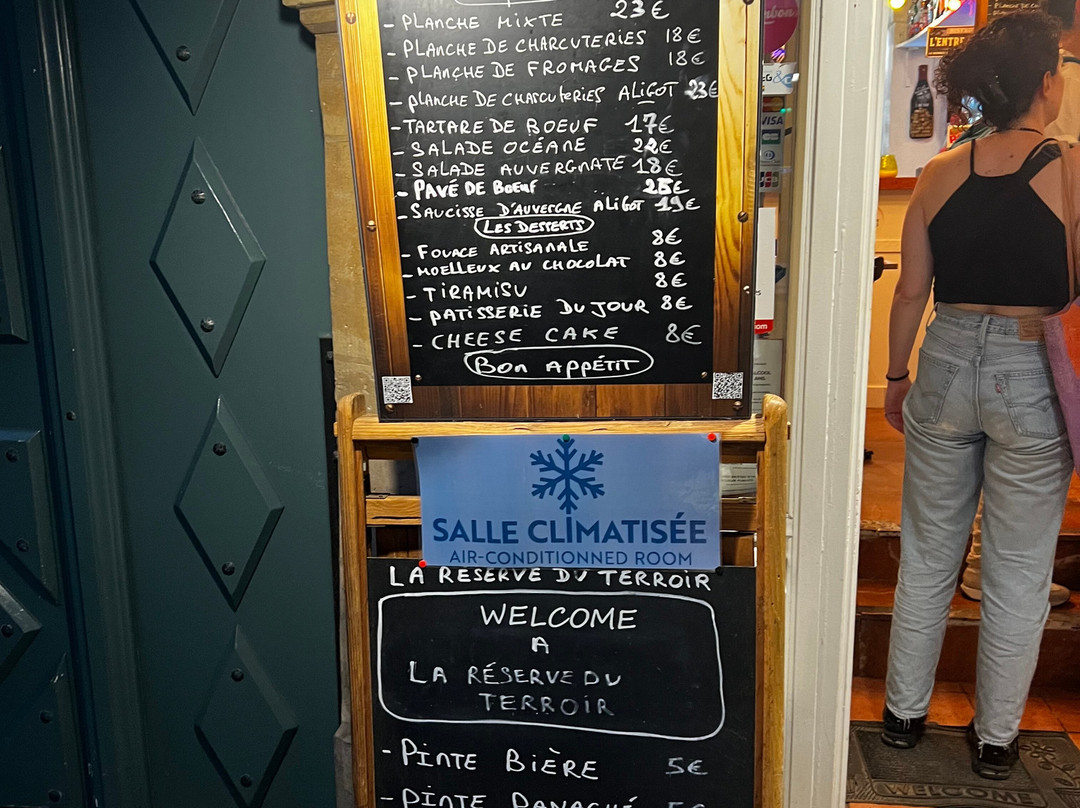 - PLANCHE MIXTE 23€
- PLANCHE DE CHARCUTERIES 18€
- PLANCHE DE FROMAGES 18€
- PLANCHE DE CHARCUTERIES ALIGOT 23€
- TARTARE DE BOEUF 17€
- SALADE OCÉANE 22€
- SALADE AUVERGNATE 18€
- PAVÉ DE BOEUF 25€
- SAUCISSE D'AUVERGNE ALIGOT 19€
LES DESSERTS
- FOUACE ARTISANALE 8€
- MOELLEUX AU CHOCOLAT 8€
- TIRAMISU 8€
- PATISSERIE DU JOUR 8€
- CHEESE CAKE 8€
BON APPÉTIT
SALLE CLIMATISÉE
AIR-CONDITIONNED ROOM
LA RESERVE DU TERROIR
WELCOME
A
LA RÉSERVE DU
TERROIR
- PINTE BIÈRE 5€
- PINTE PANACHÉ 5€
VISA
L'ENTRE
WELCOME